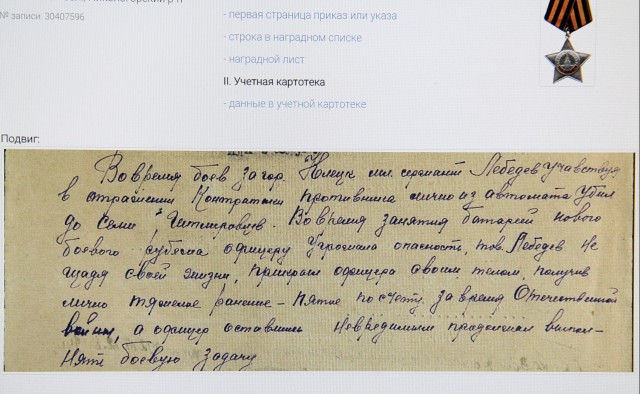 № записи: 30407596
- первая страница приказ или указа
- строка в наградном списке
- наградной лист
II. Учетная картотека
- данные в учетной картотеке
Подвиг:
Во время боев за гор. Клецк мл. сержант Лебедев участвуя
в отражении контратаки противника лично из автомата убил
до семи гитлеровцев. Во время занятия батареей нового
боевого рубежа офицеру угрожала опасность, тов. Лебедев не
щадя своей жизни, прикрыл офицера своим телом, получив
лично тяжелое ранение – пятое по счету за время Отечественной
войны, а офицер оставшись невредимым продолжал выпол-
нять боевую задачу